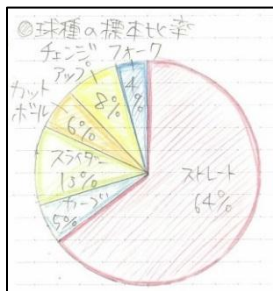 ◎球種の標本比率
チェンジアップ
8%
フォーク
4%
カットボール
6%
スライダー
13%
カーブ
5%
ストレート
64%